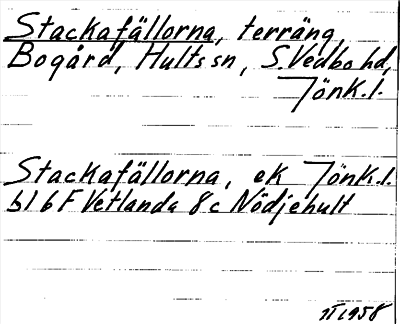 Stackafällorna, terräng,
Bogård, Hults sn, S. Vedbo hd,
Jönk. l.
Stackafällorna, ek Jönk. l.
bl 6 F Vetlanda 8c Nödjehult
1958